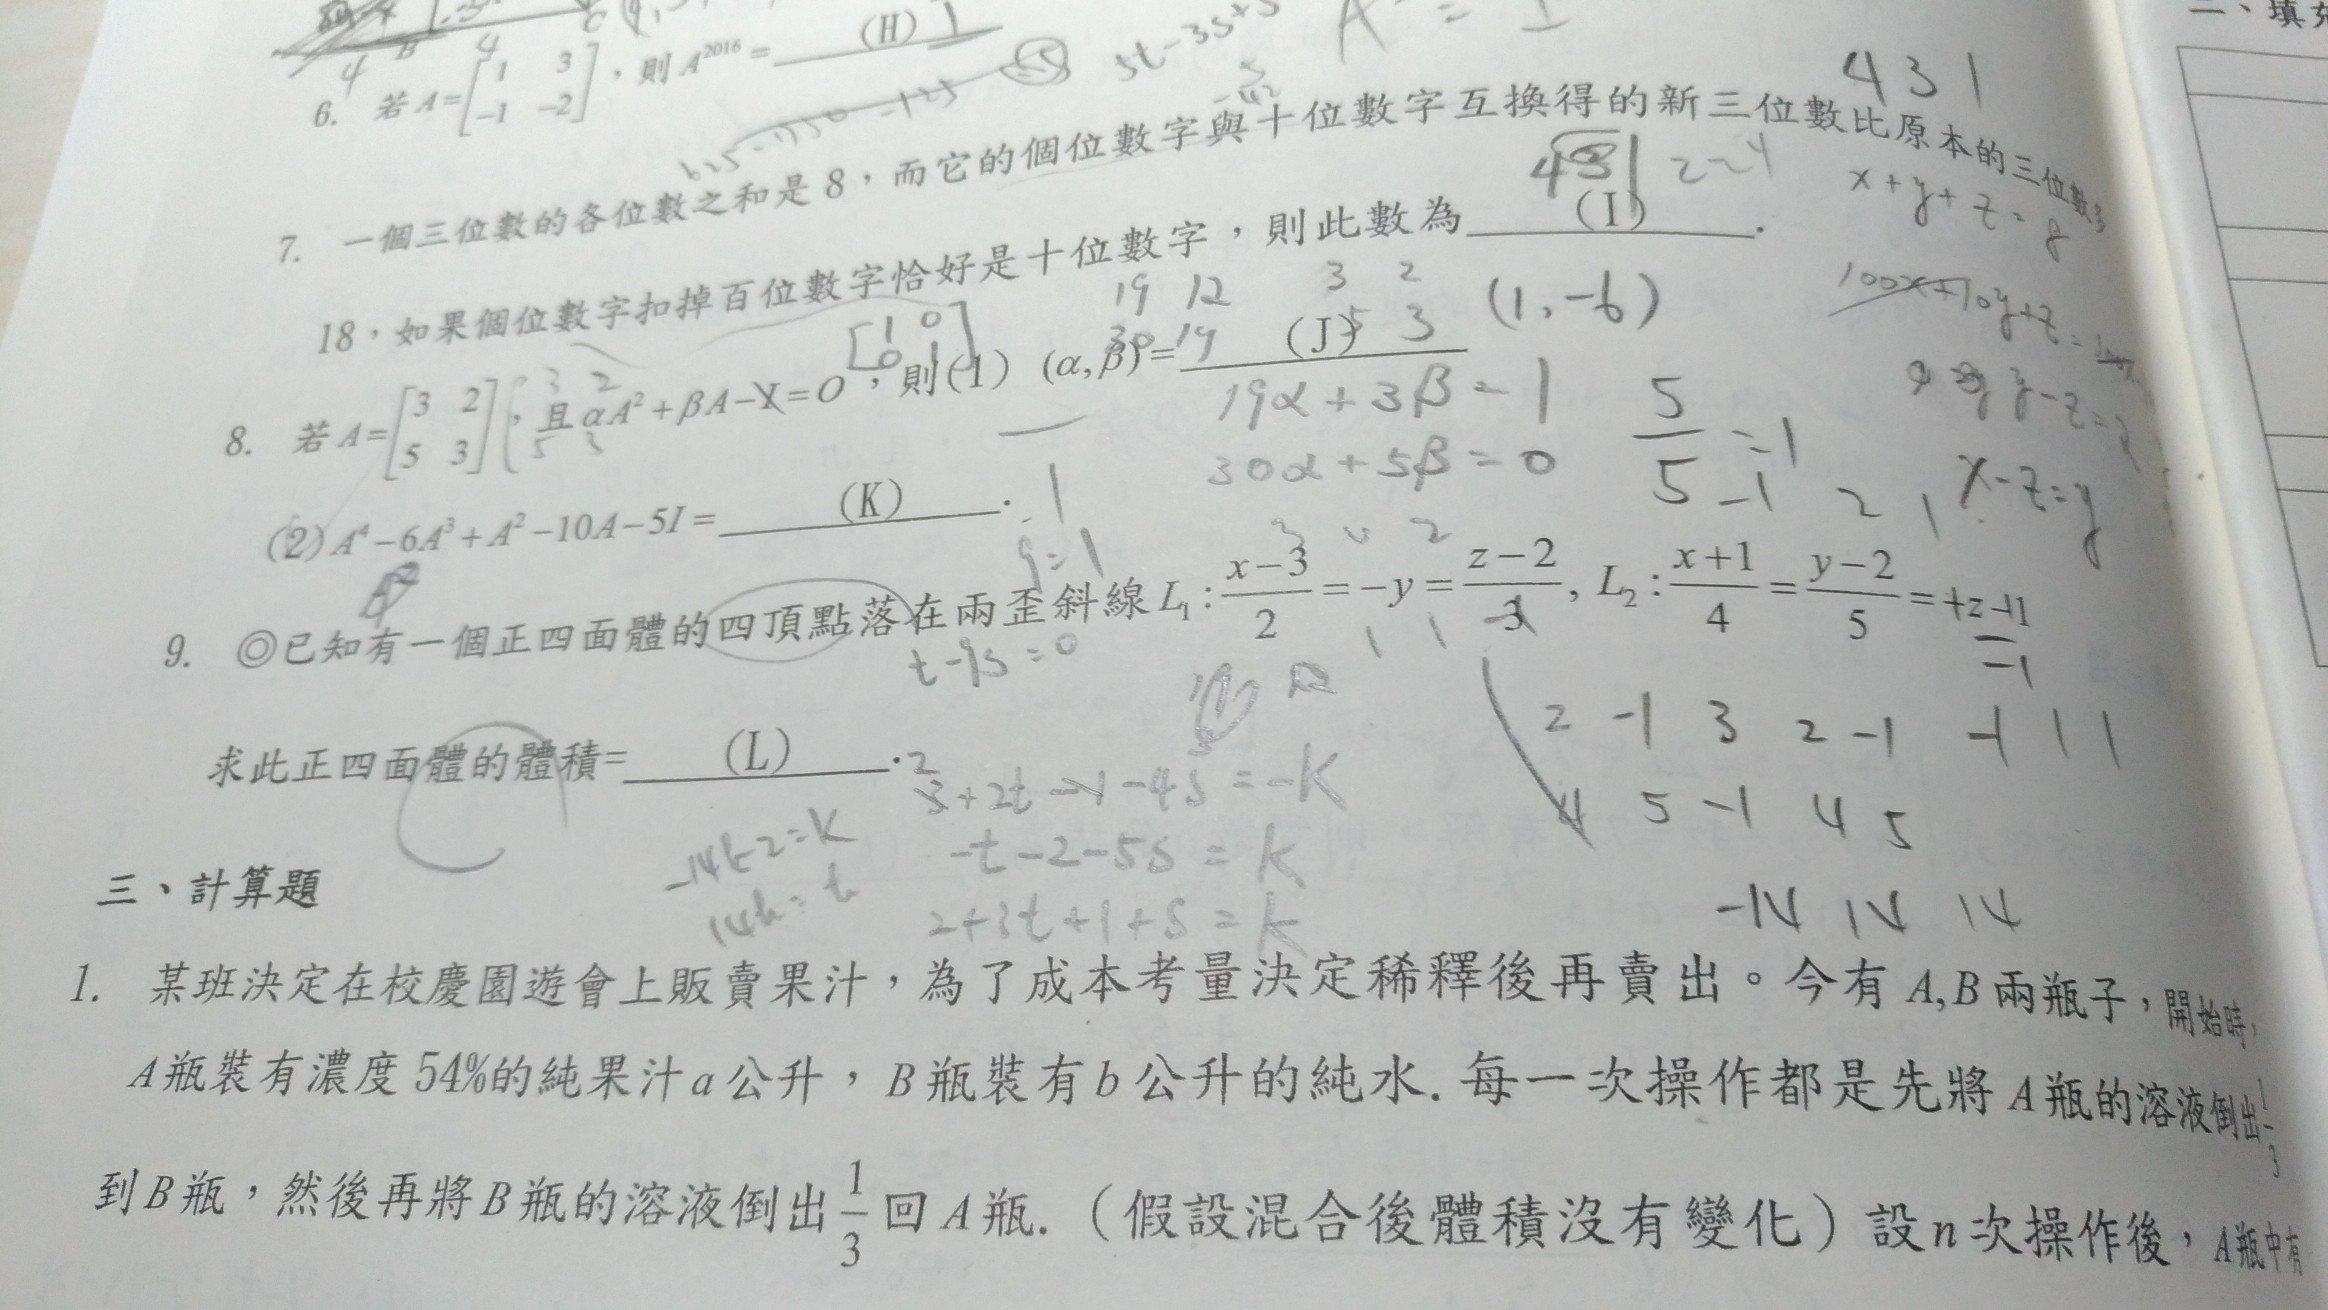 二、填充
6. 若 A=[1 3; -1 -2],則 A^2016 = (H) 1
A = I
5t-3s+5
625-750-125
-5
431
7. 一個三位數的各位數之和是 8,而它的個位數字與十位數字互換得的新三位數比原本的三位數多
431
x+y+z=8
18,如果個位數字扣掉百位數字恰好是十位數字,則此數為 (I) .
100x+10y+z=
y-z=2
x-z=y
19 12 3 2
30 19 5 3
(1,-6)
8. 若 A=[3 2; 5 3],且 αA²+βA-I=O,則(1) (α,β)= (J)
[1 0; 0 1]
3 2
5 3
19α+3β=1
30α+5β=0
5/5=1
(2) A⁴-6A³+A²-10A-5I= (K) .
-1 2 1
3 0 2
9. ◎已知有一個正四面體的四頂點落在兩歪斜線 L₁: (x-3)/2 = -y = (z-2)/3, L₂: (x+1)/4 = (y-2)/5 = +z+1
-1
t-9s=0
2 -1 3 2 -1 -1 1 1
4 5 -1 4 5
-14 14 14
求此正四面體的體積= (L) .
3+2t-1-4s=-k
-t-2-5s=k
2+3t+1+s=k
-14k-2=k
14k=t
三、計算題
1. 某班決定在校慶園遊會上販賣果汁,為了成本考量決定稀釋後再賣出。今有 A,B 兩瓶子,開始時,
A 瓶裝有濃度 54%的純果汁 a 公升,B 瓶裝有 b 公升的純水. 每一次操作都是先將 A 瓶的溶液倒出 1/3
到 B 瓶,然後再將 B 瓶的溶液倒出 1/3 回 A 瓶.(假設混合後體積沒有變化)設 n 次操作後,A 瓶中有